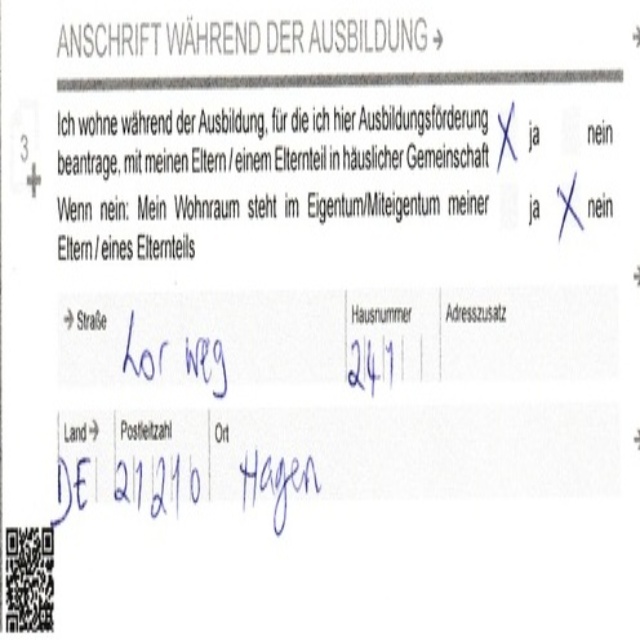 ANSCHRIFT WÄHREND DER AUSBILDUNG →
Ich wohne während der Ausbildung, für die ich hier Ausbildungsförderung
beantrage, mit meinen Eltern / einem Elternteil in häuslicher Gemeinschaft
X ja nein
3
Wenn nein: Mein Wohnraum steht im Eigentum/Miteigentum meiner
Eltern / eines Elternteils
ja X nein
→ Straße Hausnummer Adresszusatz
Lor weg 241
Land → Postleitzahl Ort
DE 21210 Hagen